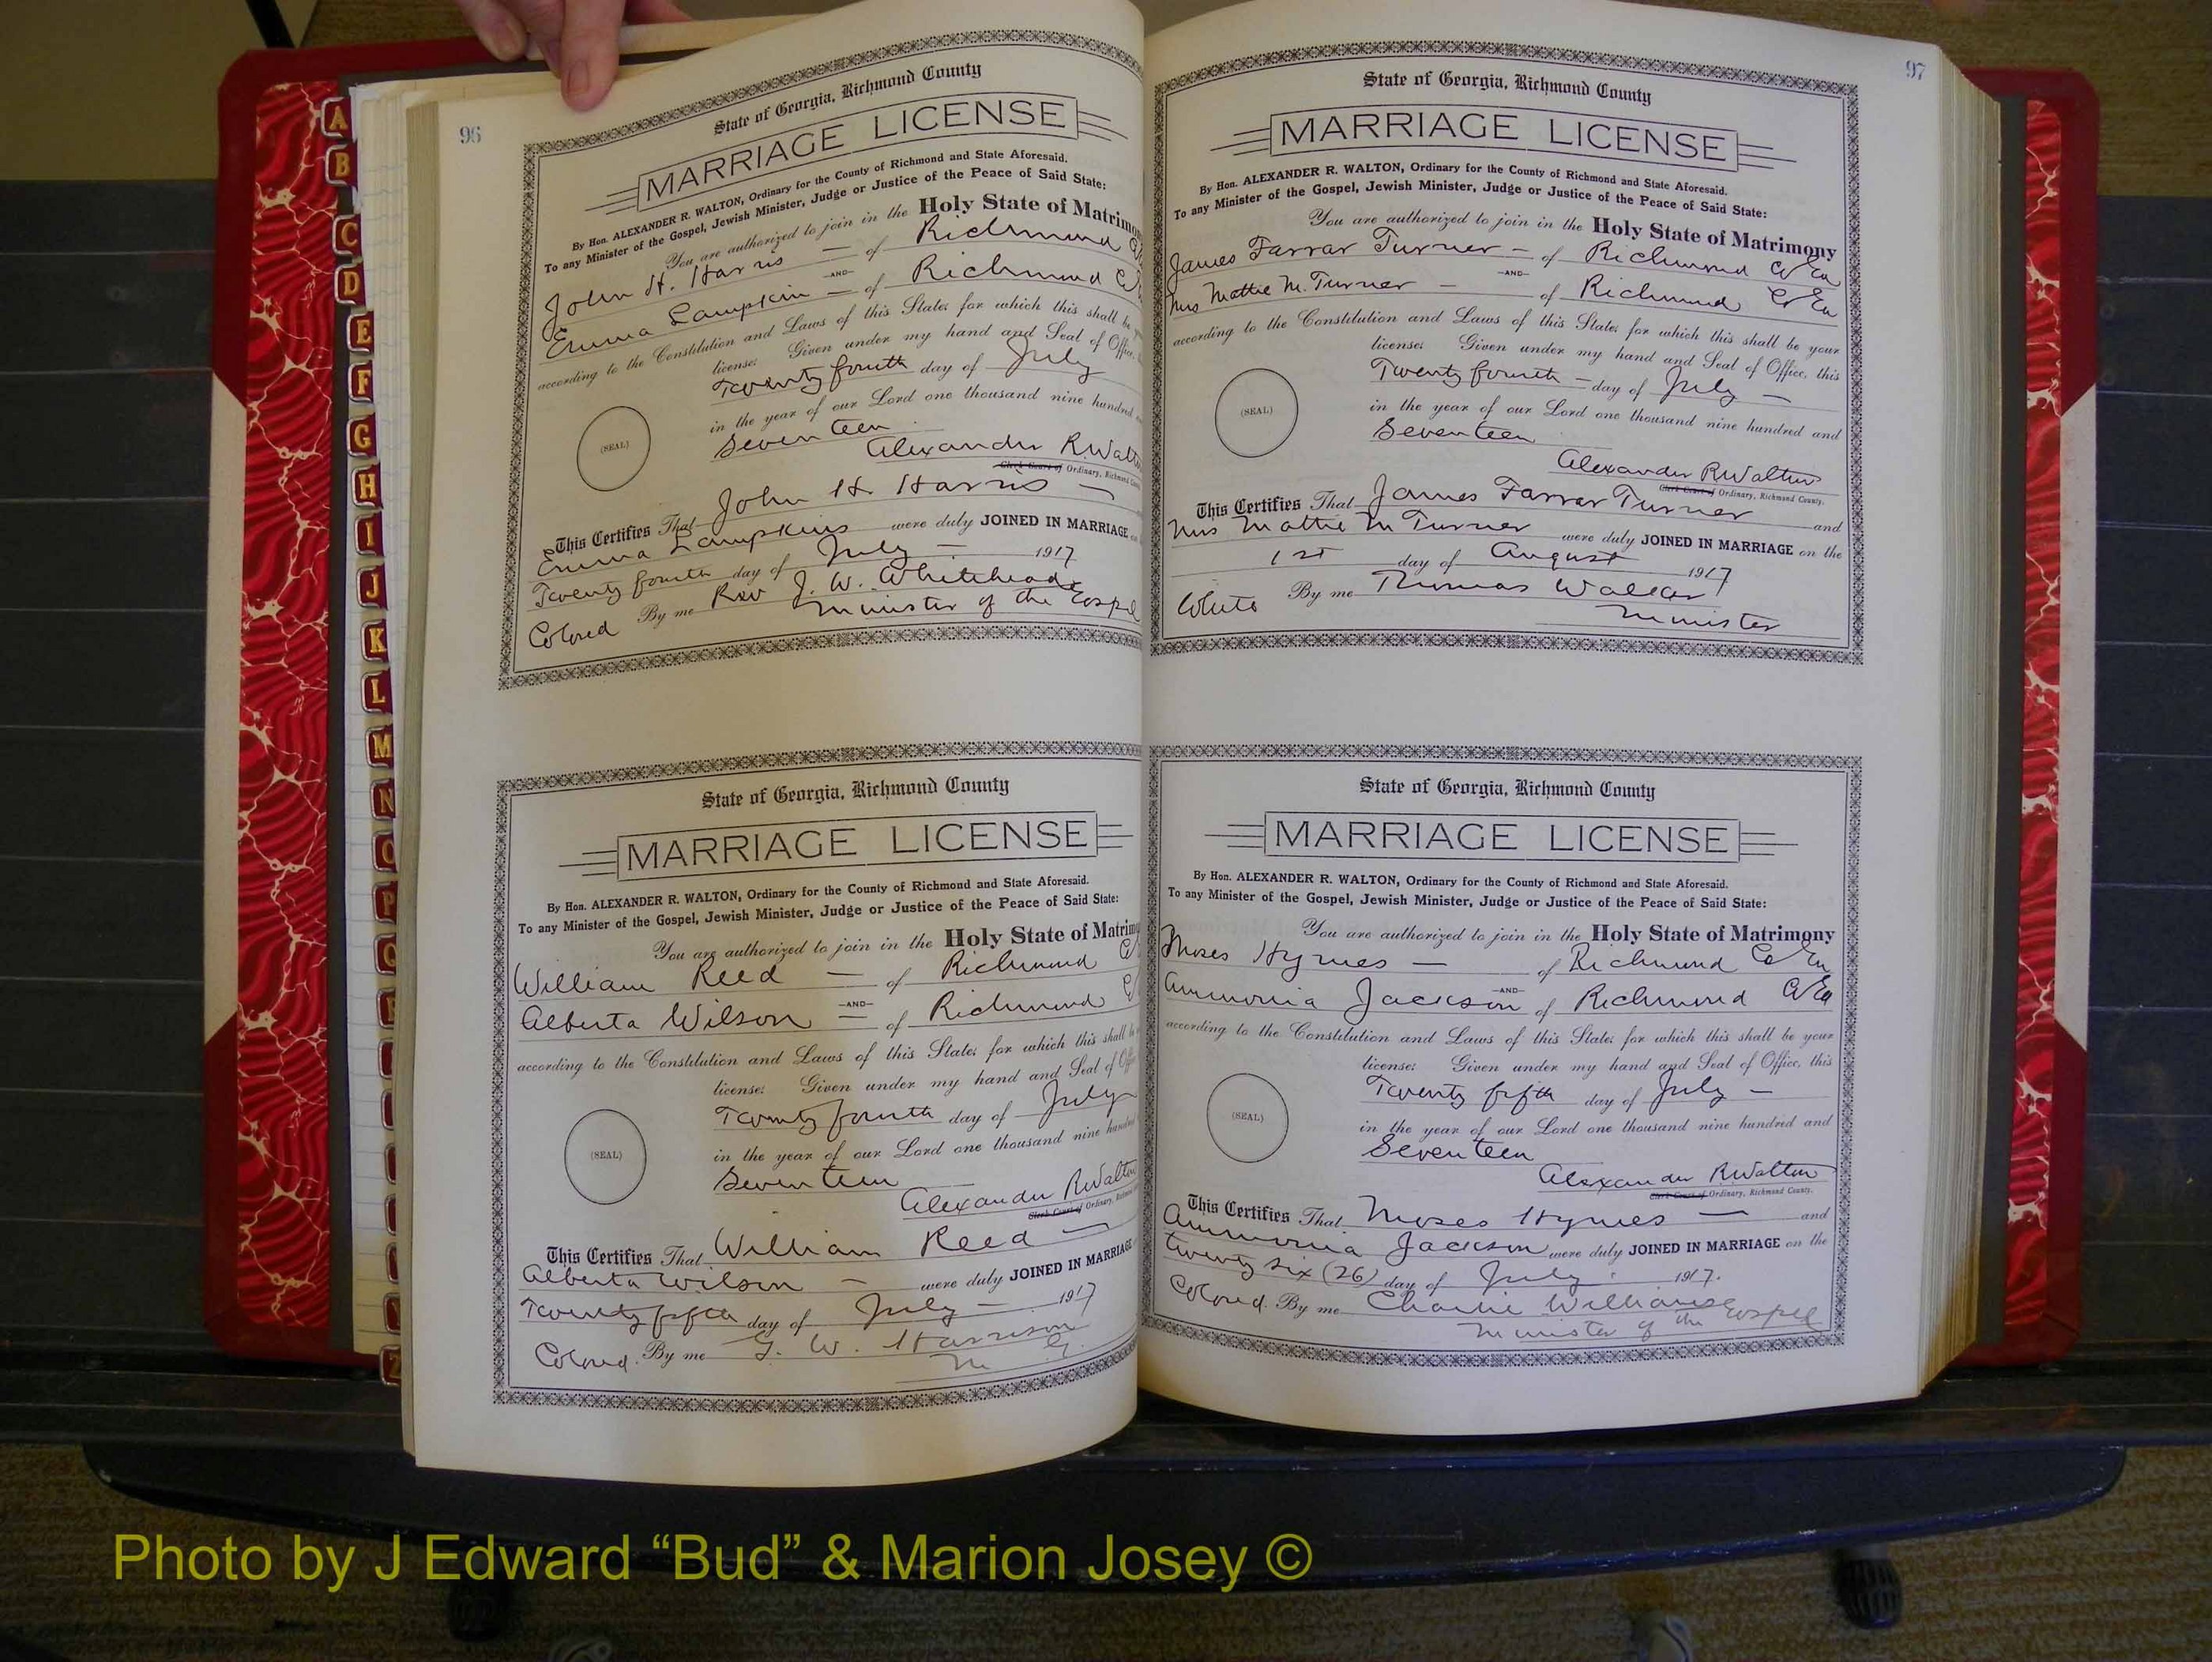 96
State of Georgia, Richmond County
MARRIAGE LICENSE
By Hon. ALEXANDER R. WALTON, Ordinary for the County of Richmond and State Aforesaid.
To any Minister of the Gospel, Jewish Minister, Judge or Justice of the Peace of Said State:
You are authorized to join in the Holy State of Matrimony
John H. Harris — of Richmond
—AND—
Emma Lampkin — of Richmond
according to the Constitution and Laws of this State; for which this shall be
license: Given under my hand and Seal of Office,
Twenty fourth day of July
in the year of our Lord one thousand nine hundred
Seventeen
(SEAL)
Alexander R Walton
Clerk Court of Ordinary, Richmond
This Certifies That John H. Harris —
Emma Lampkins were duly JOINED IN MARRIAGE
Twenty fourth day of July — 1917
Colored By me Rev J. W. Whitehead
Minister of the Gospel
State of Georgia, Richmond County
MARRIAGE LICENSE
By Hon. ALEXANDER R. WALTON, Ordinary for the County of Richmond and State Aforesaid.
To any Minister of the Gospel, Jewish Minister, Judge or Justice of the Peace of Said State:
You are authorized to join in the Holy State of Matrimony
William Reed — of Richmond
—AND—
Alberta Wilson — of Richmond
according to the Constitution and Laws of this State; for which this shall
license: Given under my hand and Seal of
Twenty fourth day of July
in the year of our Lord one thousand nine hundred
Seventeen
(SEAL)
Alexander R Walton
Clerk Court of Ordinary,
This Certifies That William Reed —
Alberta Wilson — were duly JOINED IN MARRIAGE
Twenty fifth day of July — 1917
Colored. By me G. W. Harrison
M G.
97
State of Georgia, Richmond County
MARRIAGE LICENSE
By Hon. ALEXANDER R. WALTON, Ordinary for the County of Richmond and State Aforesaid.
To any Minister of the Gospel, Jewish Minister, Judge or Justice of the Peace of Said State:
You are authorized to join in the Holy State of Matrimony
James Farrar Turner — of Richmond Co Ga
—AND—
Mrs Mattie M. Turner — of Richmond Co Ga
according to the Constitution and Laws of this State; for which this shall be your
license: Given under my hand and Seal of Office, this
Twenty fourth — day of July —
in the year of our Lord one thousand nine hundred and
Seventeen
(SEAL)
Alexander R Walton
Clerk Court of Ordinary, Richmond County.
This Certifies That James Farrar Turner and
Mrs Mattie M Turner were duly JOINED IN MARRIAGE on the
1st day of August 1917
White By me Thomas Walker
Minister
State of Georgia, Richmond County
MARRIAGE LICENSE
By Hon. ALEXANDER R. WALTON, Ordinary for the County of Richmond and State Aforesaid.
To any Minister of the Gospel, Jewish Minister, Judge or Justice of the Peace of Said State:
You are authorized to join in the Holy State of Matrimony
Moses Hymes — of Richmond Co Ga
—AND—
Ammonia Jackson of Richmond Co Ga
according to the Constitution and Laws of this State; for which this shall be your
license: Given under my hand and Seal of Office, this
Twenty fifth day of July —
in the year of our Lord one thousand nine hundred and
Seventeen
(SEAL)
Alexander R Walton
Clerk Court of Ordinary, Richmond County.
This Certifies That Moses Hymes — and
Ammonia Jackson were duly JOINED IN MARRIAGE on the
twenty six (26) day of July 1917.
Colored. By me Charlie Williams
Minister of the Gospel
A
B
C
D
E
F
G
H
I
J
K
L
M
N
O
P
Q
R
Z
Photo by J Edward “Bud” & Marion Josey ©